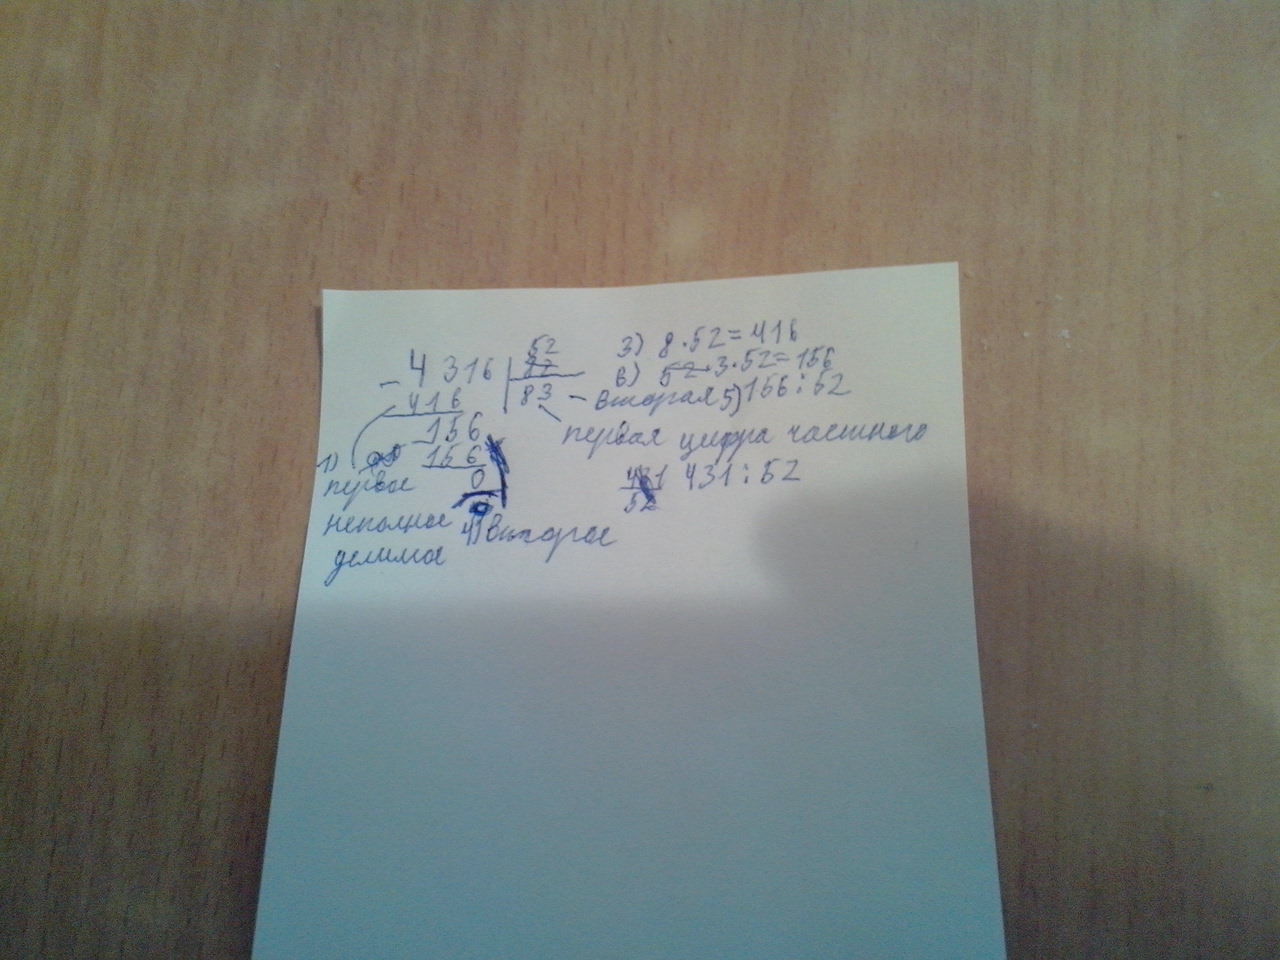 4316 52
416 83
156
156
0
3) 8·52=416
6) 3·52=156
вторая 5) 156:52
первая цифра частного
431:52
1)
первое
неполное
делимое
4) второе